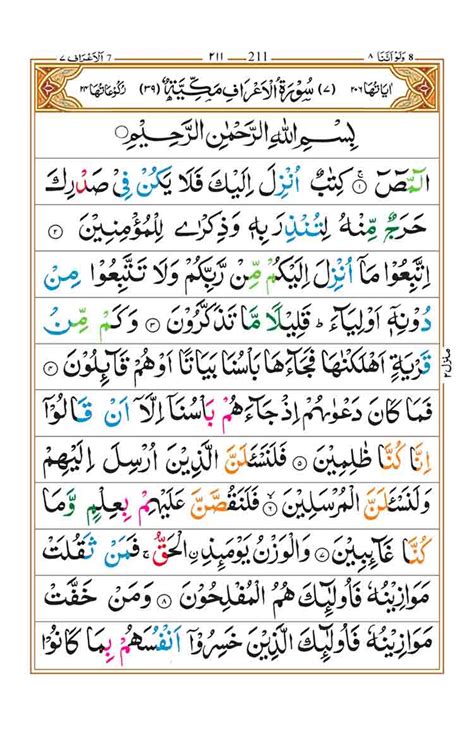 ٨ ولو اننا 8 211 ٢١١ 7 الاعراف ٧
اٰیَاتُهَا ٢٠٦ (٧) سُوْرَةُ الْاَعْرَافِ مَكِّیَّةٌ (٣٩) رُكُوْعَاتُهَا ٢٤
بِسْمِ اللّٰهِ الرَّحْمٰنِ الرَّحِیْمِ
الٓمّٓصٓ ۚ ١ كِتٰبٌ اُنْزِلَ اِلَیْكَ فَلَا یَكُنْ فِیْ صَدْرِكَ
حَرَجٌ مِّنْهُ لِتُنْذِرَ بِهٖ وَذِكْرٰی لِلْمُؤْمِنِیْنَ ٢
اِتَّبِعُوْا مَاۤ اُنْزِلَ اِلَیْكُمْ مِّنْ رَّبِّكُمْ وَلَا تَتَّبِعُوْا مِنْ
دُوْنِهٖۤ اَوْلِیَآءَ ؕ قَلِیْلًا مَّا تَذَكَّرُوْنَ ٣ وَكَمْ مِّنْ
قَرْیَةٍ اَهْلَكْنٰهَا فَجَآءَهَا بَاْسُنَا بَیَاتًا اَوْهُمْ قَآئِلُوْنَ ٤
فَمَا كَانَ دَعْوٰىهُمْ اِذْ جَآءَهُمْ بَاْسُنَاۤ اِلَّاۤ اَنْ قَالُوْۤا
اِنَّا كُنَّا ظٰلِمِیْنَ ٥ فَلَنَسْـَٔلَنَّ الَّذِیْنَ اُرْسِلَ اِلَیْهِمْ
وَلَنَسْـَٔلَنَّ الْمُرْسَلِیْنَ ۙ ٦ فَلَنَقُصَّنَّ عَلَیْهِمْ بِعِلْمٍ وَّمَا
كُنَّا غَآئِبِیْنَ ٧ وَالْوَزْنُ یَوْمَئِذِ اِ۟لْحَقُّ ۚ فَمَنْ ثَقُلَتْ
مَوَازِیْنُهٗ فَاُولٰٓئِكَ هُمُ الْمُفْلِحُوْنَ ٨ وَمَنْ خَفَّتْ
مَوَازِیْنُهٗ فَاُولٰٓئِكَ الَّذِیْنَ خَسِرُوْۤا اَنْفُسَهُمْ بِمَا كَانُوْا
منزل ٢